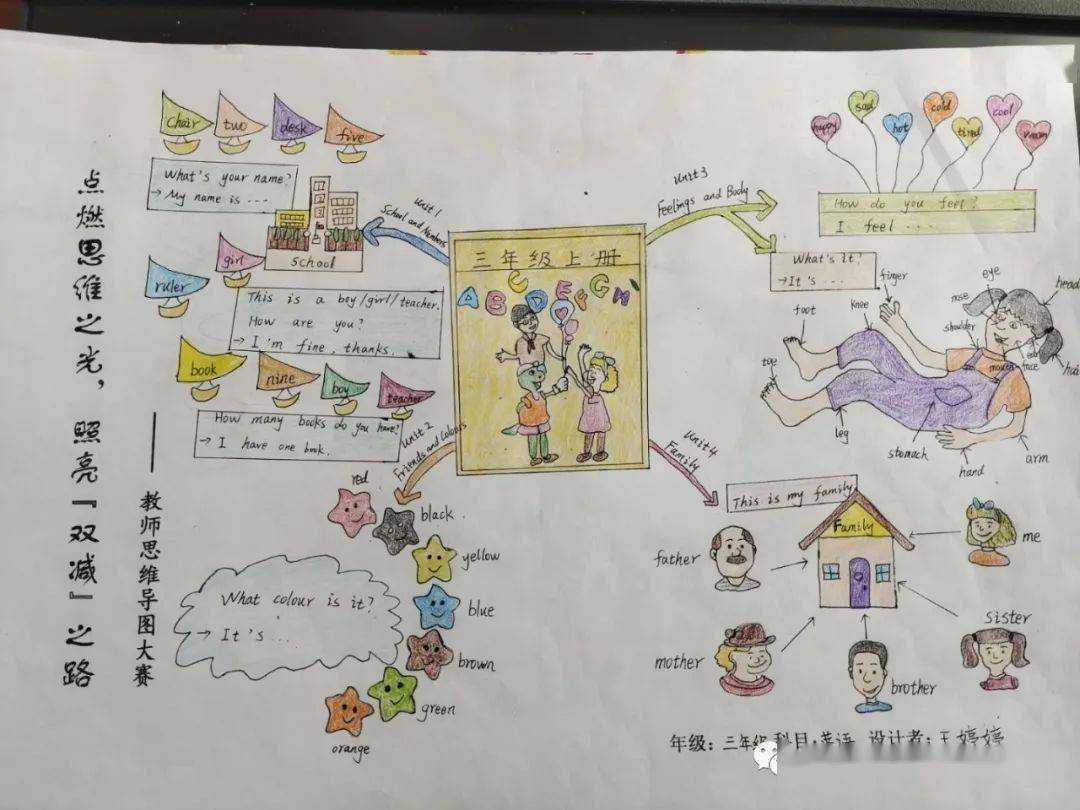 点燃思维之光，照亮『双减』之路
——教师思维导图大赛
三年级上册
A B C D E F G H
Unit 1
School and Numbers
chair
two
desk
five
What's your name?
→ My name is ...
School
girl
ruler
This is a boy/girl/teacher.
How are you?
→ I'm fine, thanks.
book
nine
boy
teacher
How many books do you have?
→ I have one book.
Unit 2
Friends and Colours
red
black.
yellow
blue
brown
green
orange
What colour is it?
→ It's ...
Unit 3
Feelings and Body
happy
sad
hot
cold
tired
cool
warm
How do you feel?
I feel ...
What's it?
→ It's ...
finger
eye
head
nose
knee
foot
shoulder
ear
mouth
face
hai
toe
leg
stomach
hand
arm
Unit 4
Family
This is my family
Family
father
me
mother
sister
brother
年级：三年级 科目：英语 设计者：王婷婷